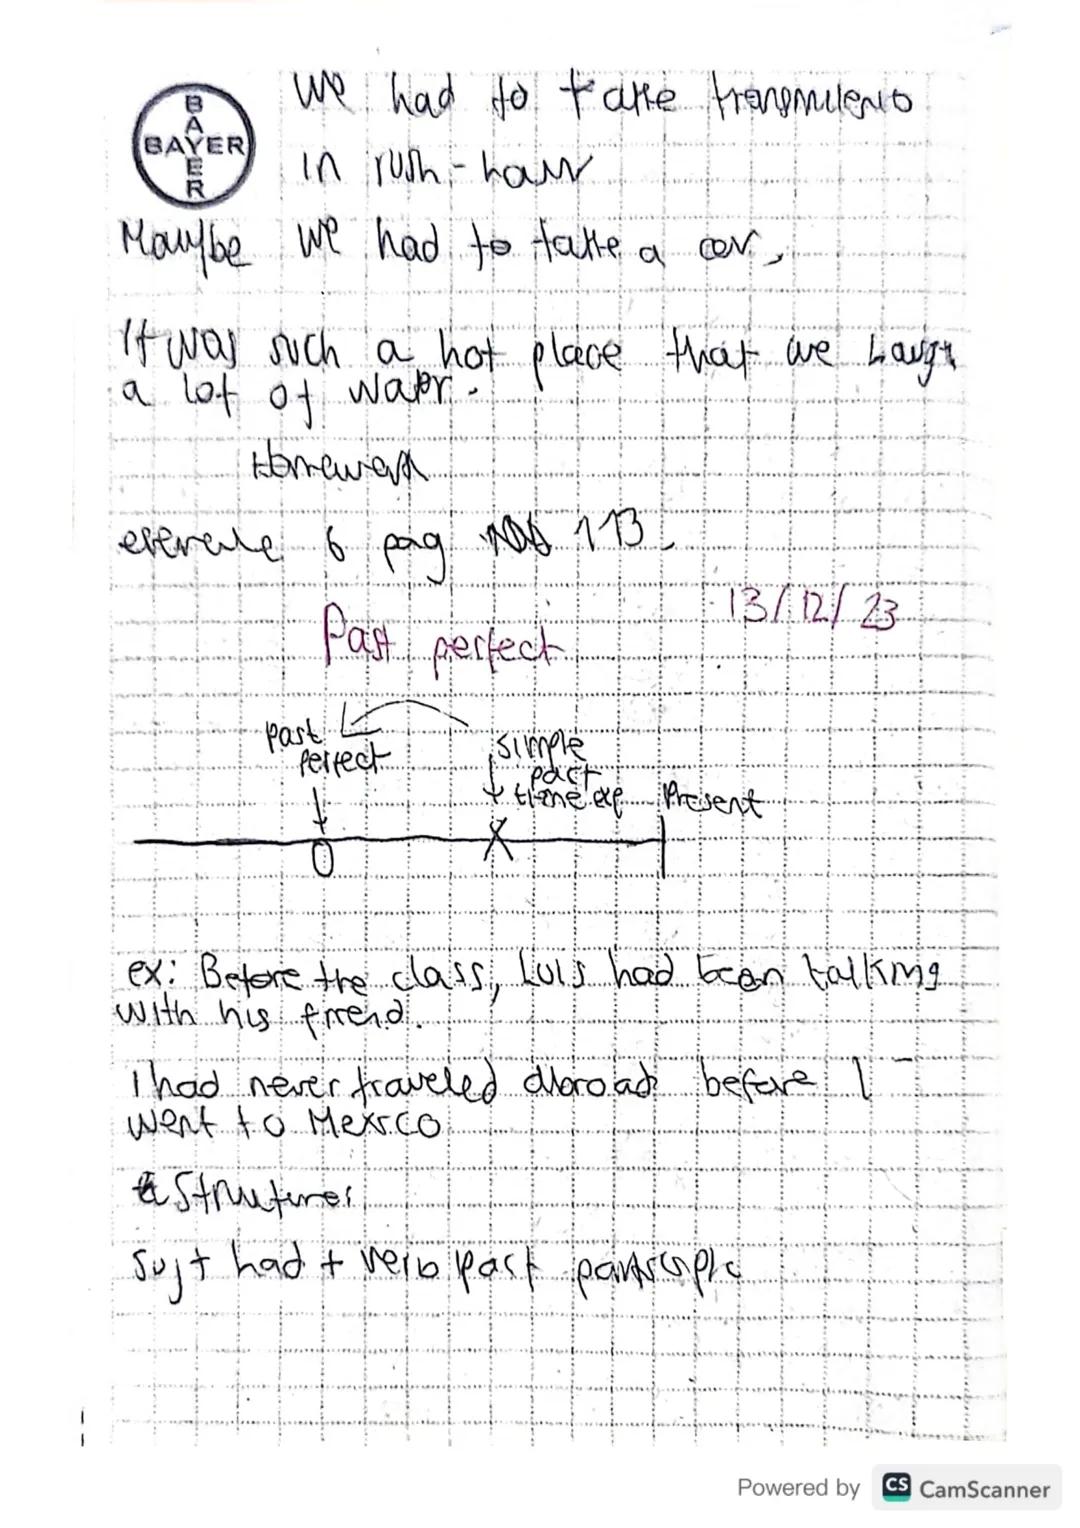 BAYER
BAYER
We had to take transmilenio
in rush-hour
Maybe we had to take a car,
It was such a hot place that we
a lot of water.
Homework
6 pag 113
13/12/23
Past perfect
past perfect
simple past time exp
Present
ex: Before the class, Luis had been talking
with his friend.
I had never traveled abroad before I
went to Mexico
Structures
Suj+ had + verb past participle
Powered by CS CamScanner